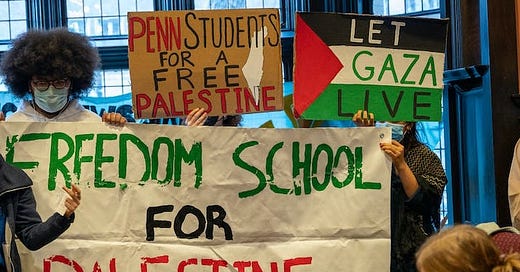 PENN STUDENTS
FOR A
FREE
PALESTINE
LET
GAZA
LIVE
FREEDOM SCHOOL
FOR
PALESTINE